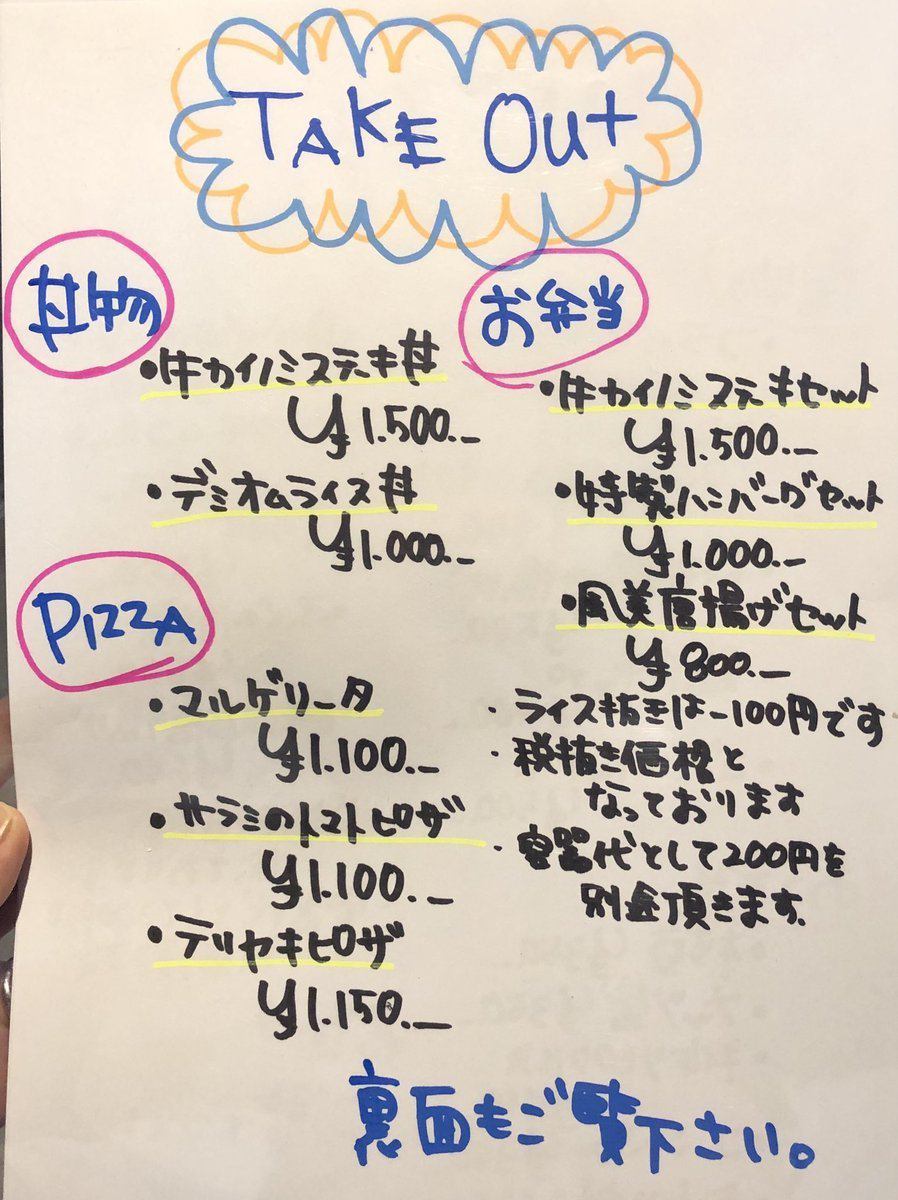 TAKE Out
丼物
・牛カイノミステーキ丼
¥1.500.-
・デミオムライス丼
¥1.000.-
PIZZA
・マルゲリータ
¥1.100.-
・サラミのトマトピザ
¥1.100.-
・テリヤキピザ
¥1.150.-
お弁当
・牛カイノミステーキセット
¥1.500.-
・特製ハンバーグセット
¥1.000.-
・風美唐揚げセット
¥800.-
・ライス抜きは-100円です
・税抜き価格と
なっております
・容器代として200円を
別途頂きます.
裏面もご覧下さい。